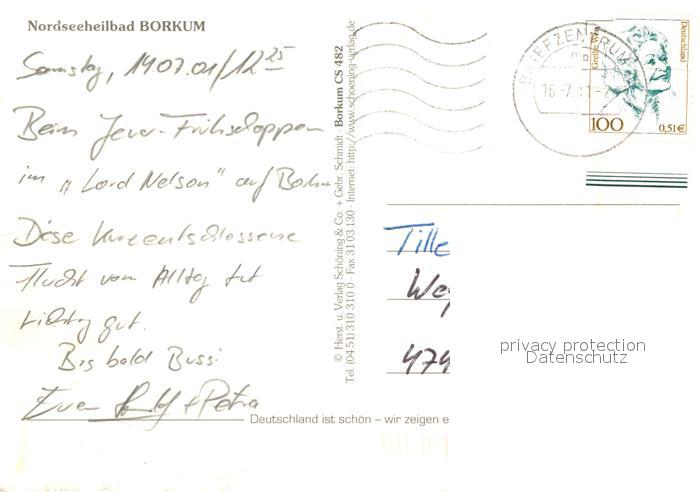 Nordseeheilbad BORKUM
Samstag, 1407.01/12 25
Beim Jever-Frühschoppen
im „Lord Nelson" auf Borkum
Diese kurzentschlossene
Flucht vom Alltag tut
richtig gut.
Bis bald Bussi
Euer & Petra
© Herst. u. Verlag Schöning & Co. + Gebr. Schmidt · Borkum CS 482
Tel. (04 51) 310 310 0 · Fax 31 03 130 · Internet: http://www.schoening-verlag.de
BRIEFZENTRUM
Grethe
Deutschland
100
0,51€
Tille
We
474
privacy protection
Datenschutz
Deutschland ist schön – wir zeigen e